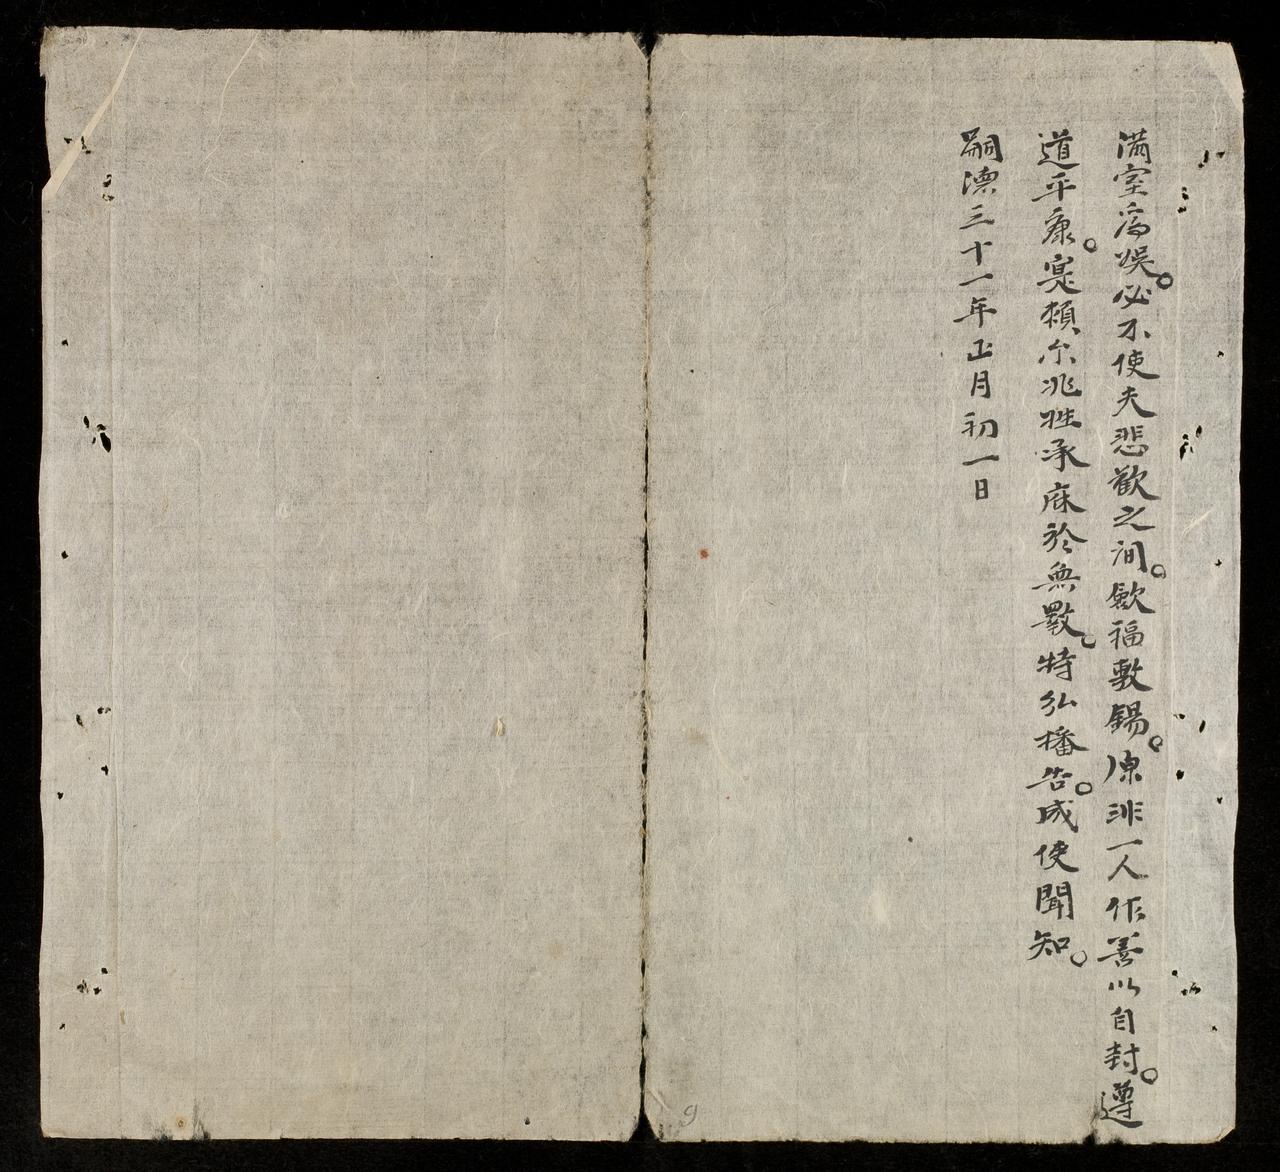 满室為娯。必不使夫悲歡之间。歛福敷錫。原非一人作善以自封。遵
道平康。寔賴尔兆姓承庥於無斁。特弘播告。咸使聞知。
嗣德三十一年正月初一日
9